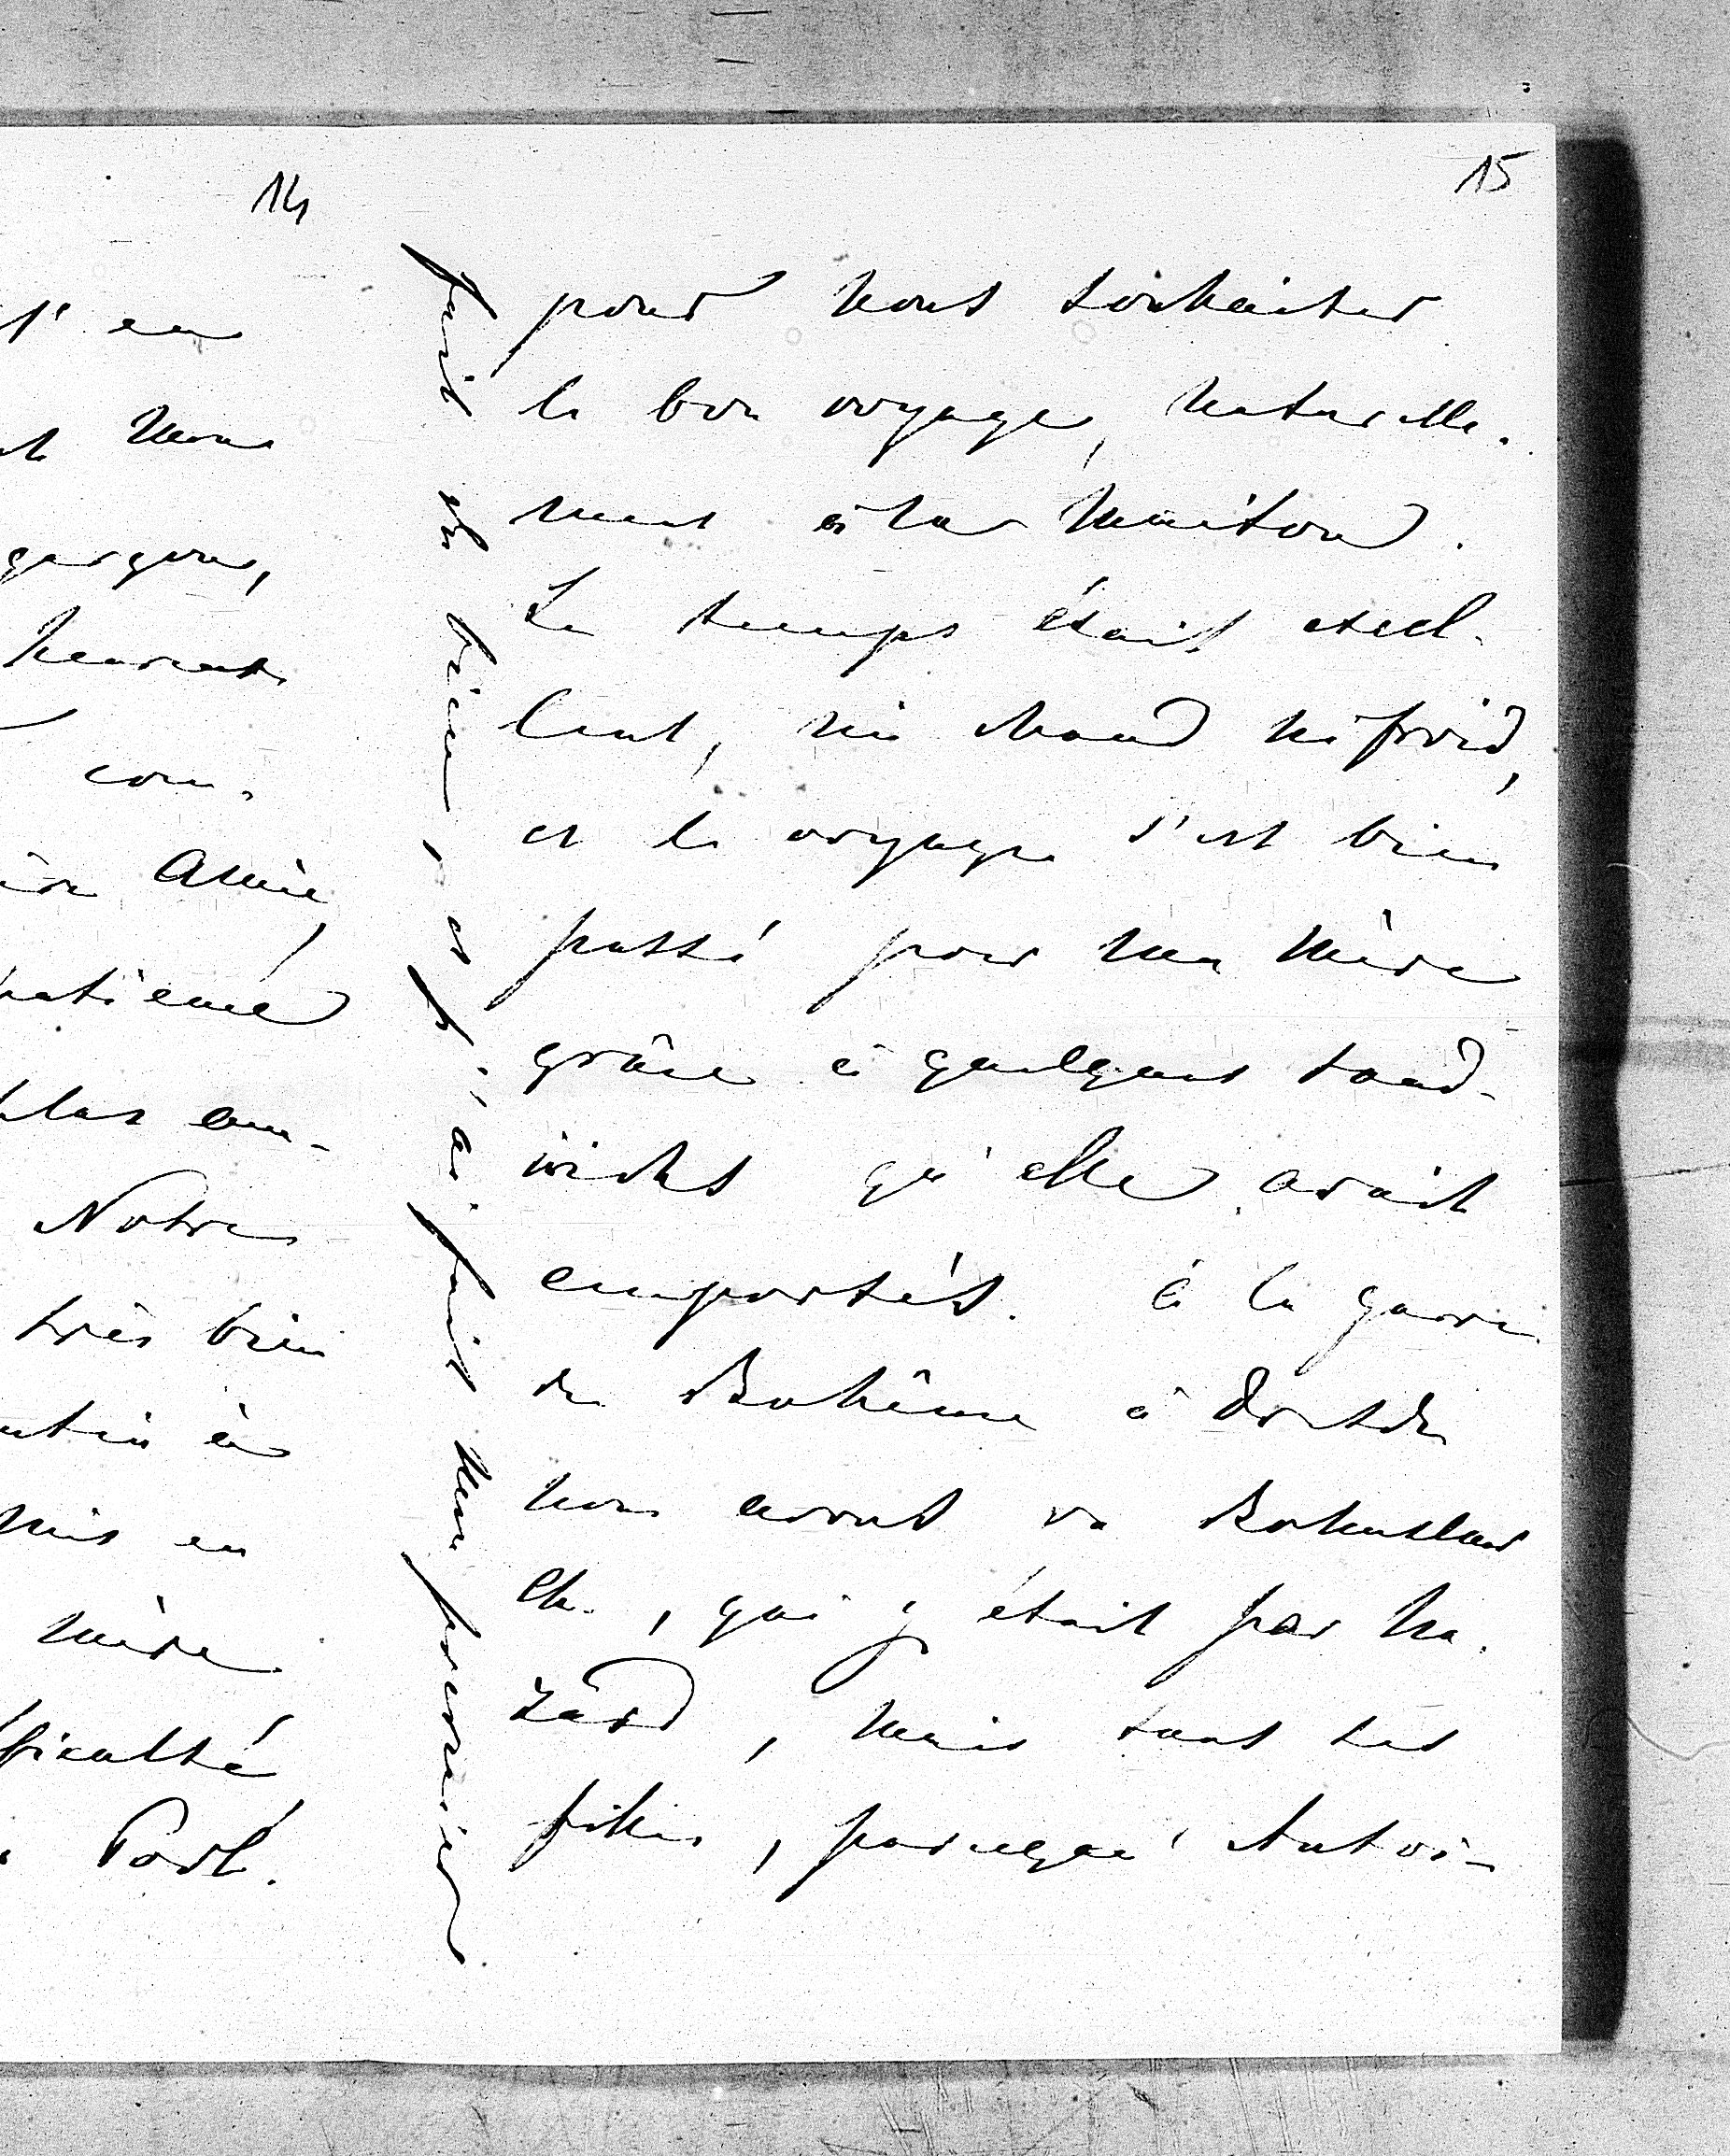 14
s' en
nous
garçons,
heureux
con-
Amie,
patiemé
plus em-
Notre
très bien
matin à
mis en
mère
fficulté
Podl.
15
pour nous souhaiter
le bon voyage, naturelle-
ment à la maison.
Le temps était excel-
lent, ni chaud ni froid,
et le voyage s'est bien
passé pour ma mère
grâce à quelques sand-
wichs qu'elle avait
emportés. à la garre
de Bohême à Dresde
nous avons vu Bohuslav
Ch., qui y était par ha-
zard, mais sans ses
filles, parceque Antoi-
fait du bien, et j'ai fait mon premier